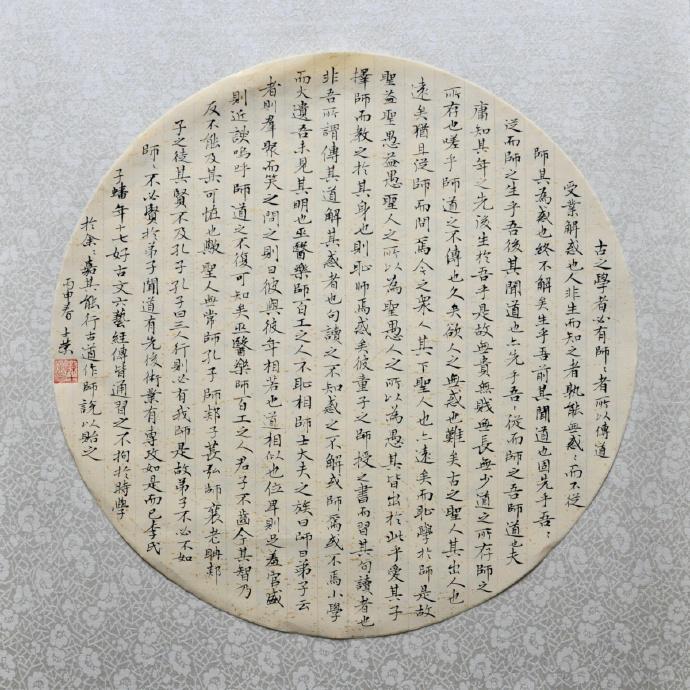 古之學者必有師〻者所以傳道
受業解惑也人非生而知之者孰能無惑〻而不從
師其為惑也終不解矣生乎吾前其聞道也固先乎吾〻
從而師之生乎吾後其聞道也亦先乎吾〻從而師之吾師道也夫
庸知其年之先後生於吾乎是故無貴無賤無長無少道之所存師之
所存也嗟乎師道之不傳也久矣欲人之無惑也難矣古之聖人其出人也
遠矣猶且從師而問焉今之衆人其下聖人也亦遠矣而恥學於師是故
聖益聖愚益愚聖人之所以為聖愚人之所以為愚其皆出於此乎愛其子
擇師而教之於其身也則恥師焉惑矣彼童子之師授之書而習其句讀者也
非吾所謂傳其道解其惑者也句讀之不知惑之不解或師焉或不焉小學
而大遺吾未見其明也巫醫樂師百工之人不恥相師士大夫之族曰師曰弟子云
者則羣聚而笑之問之則曰彼與彼年相若也道相似也位卑則足羞官盛
則近諛嗚呼師道之不復可知矣巫醫樂師百工之人君子不齒今其智乃
反不能及其可怪也歟聖人無常師孔子師郯子萇弘師襄老聃郯
子之徒其賢不及孔子孔子曰三人行則必有我師是故弟子不必不如
師〻不必賢於弟子聞道有先後術業有專攻如是而已李氏
子蟠年十七好古文六藝經傳皆通習之不拘於時學
於余〻嘉其能行古道作師說以貽之
丙申春